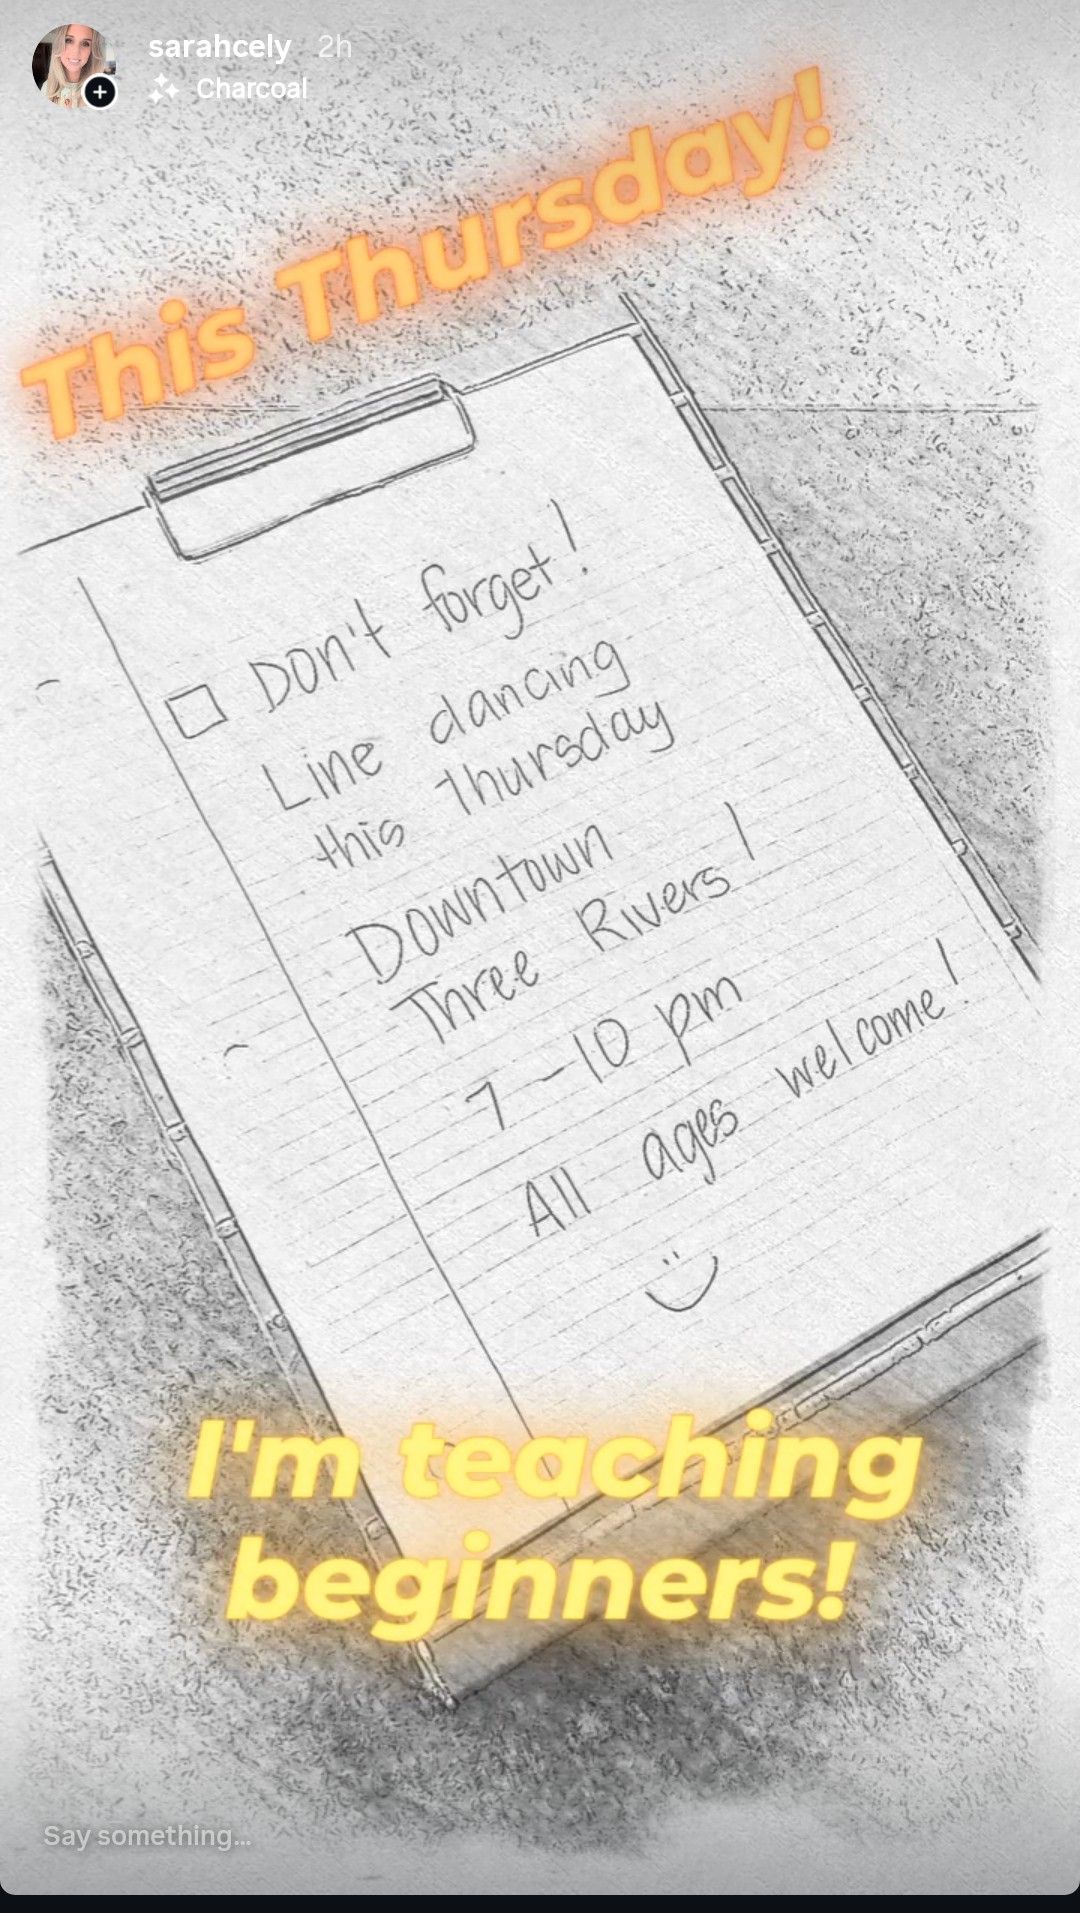 sarahcely 2h
Charcoal
This Thursday!
Don't forget!
Line dancing
this Thursday
Downtown
Three Rivers!
7-10 pm
All ages welcome!
I'm teaching
beginners!
Say something...